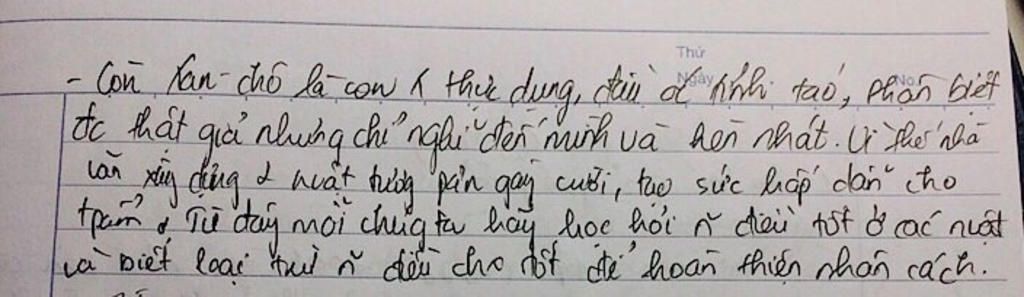 Thứ
Ngày
No.
- Còn Xan-chô là con ng thực dụng, đầu óc tỉnh táo, phân biệt
đc thật giả nhưng chỉ nghĩ đến mình và hèn nhát. Vì thế nhà
văn xây dựng 2 nvật tương phản gây cười, tạo sức hấp dẫn cho
tphẩm. Từ đây mỗi chúng ta hãy học hỏi n~ điều tốt ở các nvật
và biết loại trừ n~ điều cho tốt để hoàn thiện nhân cách.